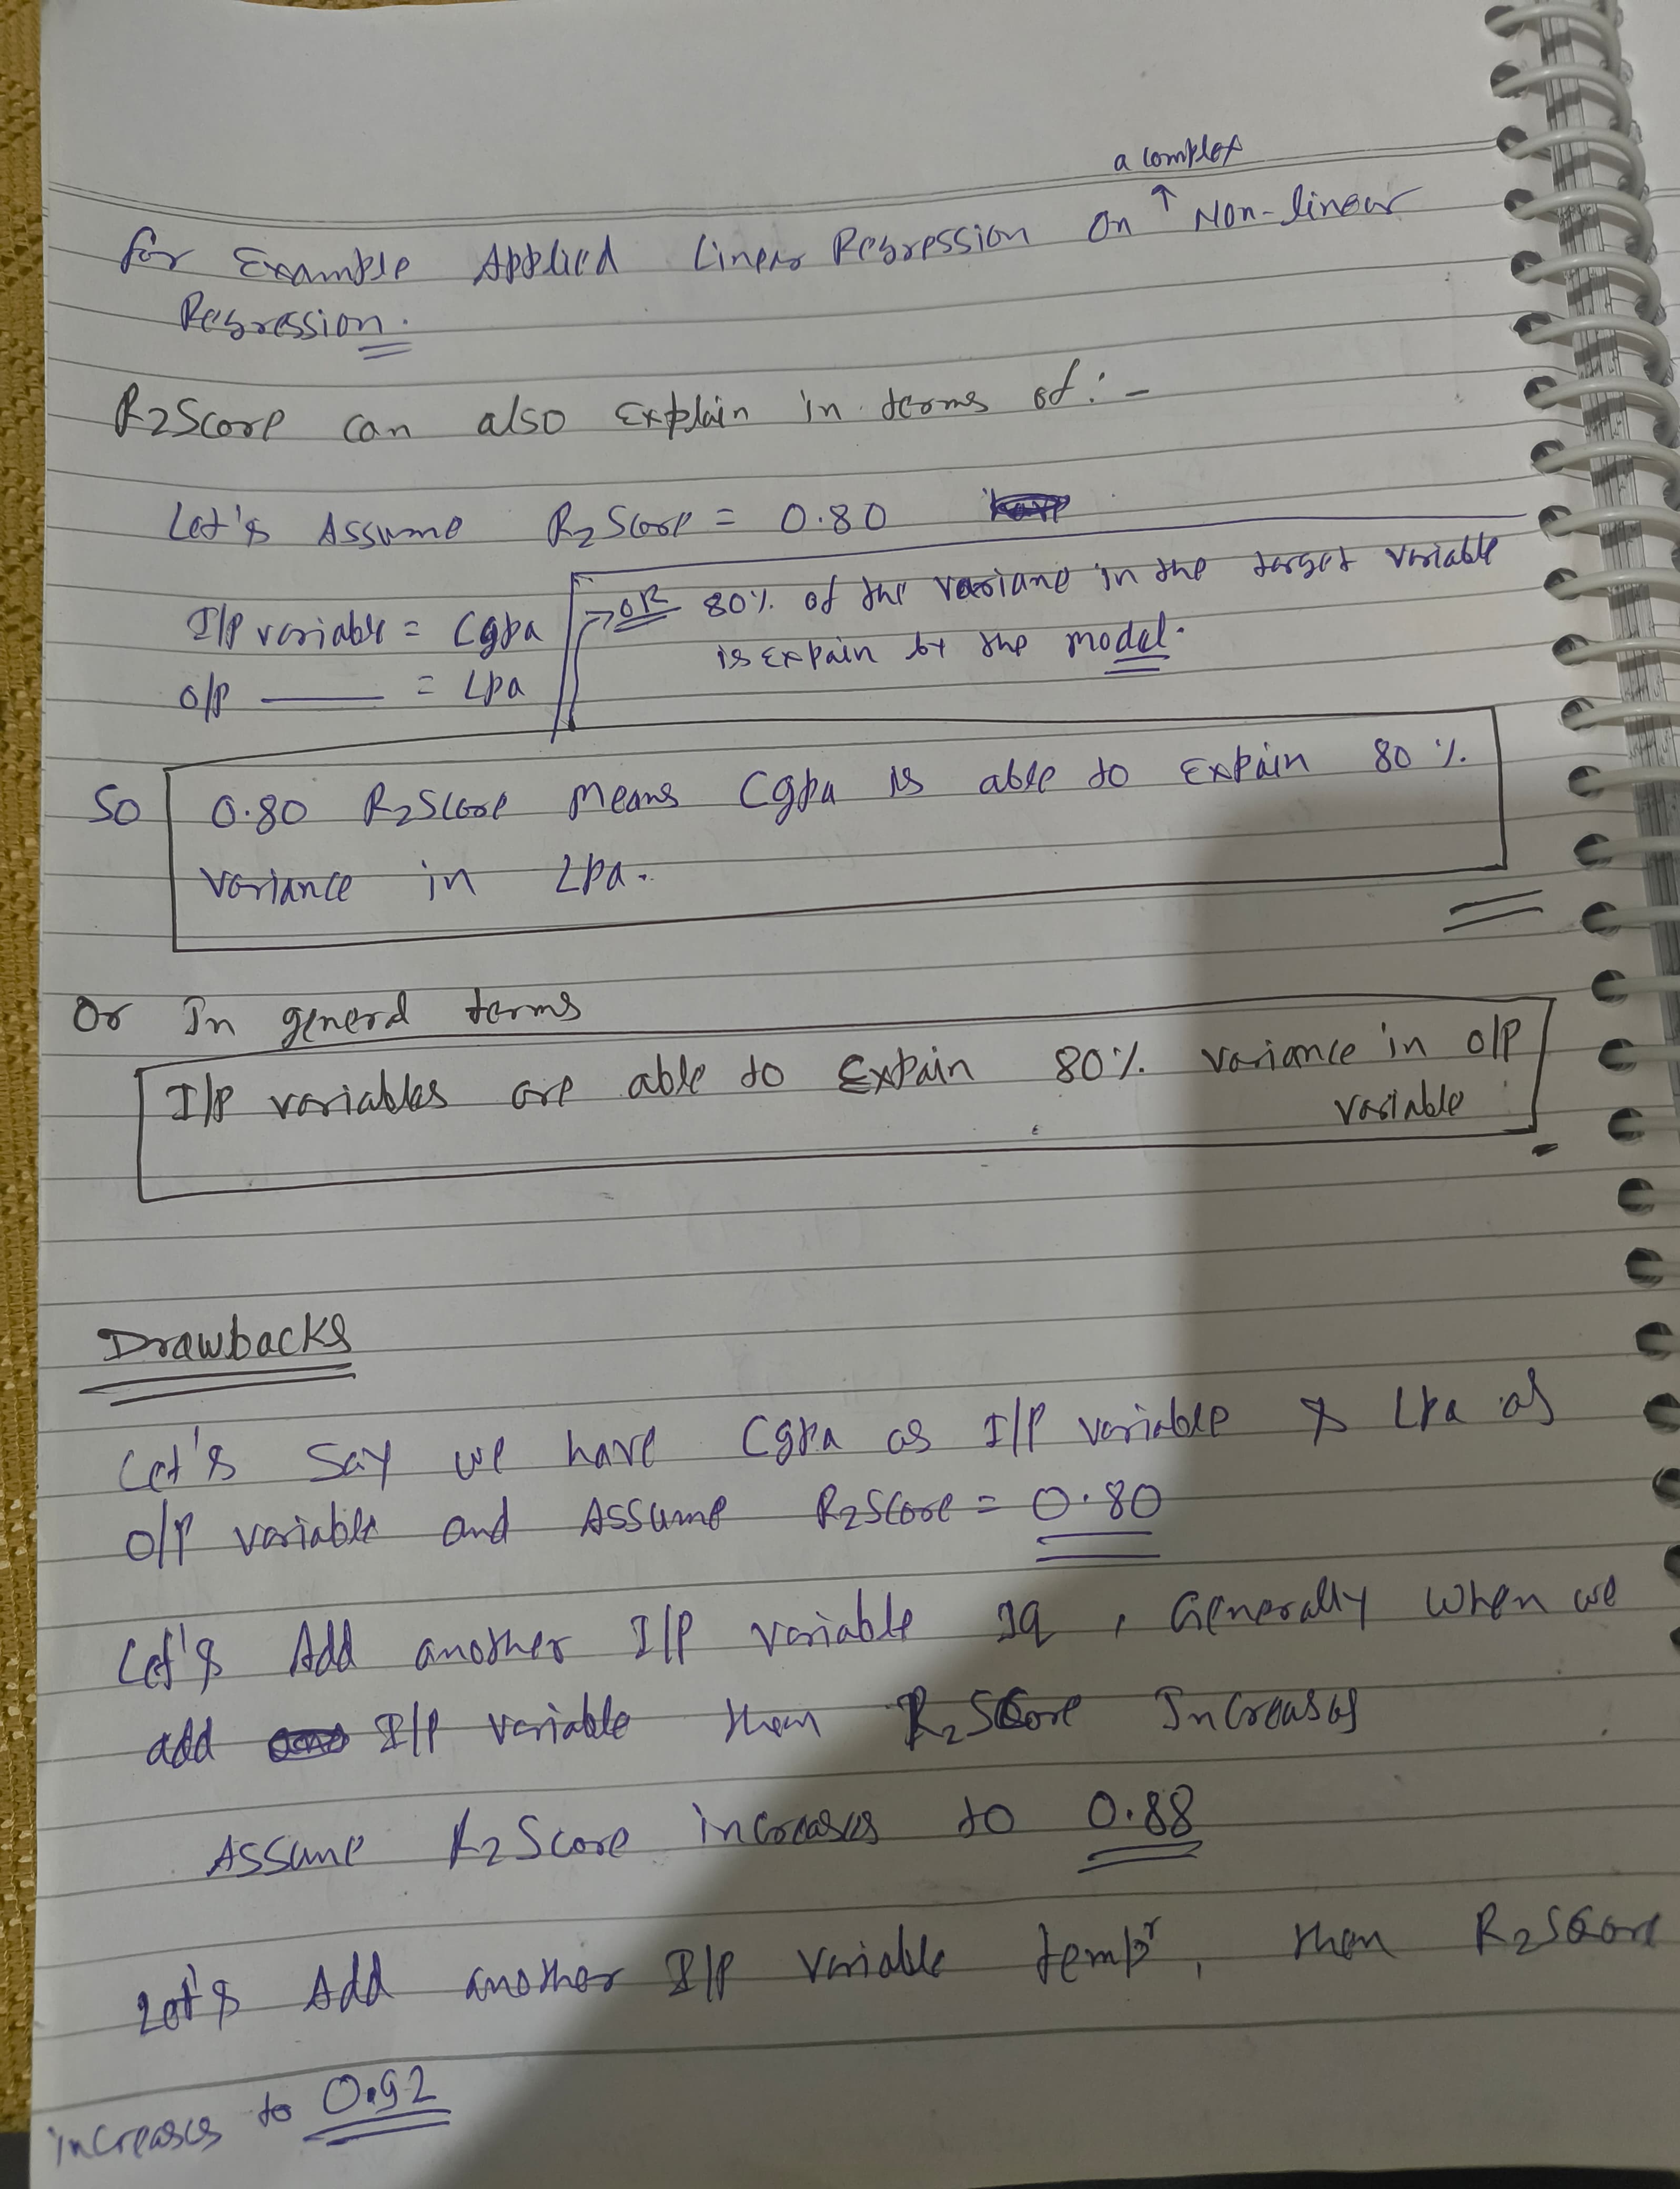 a complex
for Example Applied Linear Regression On ↑ Non-linear
Regression.
R2Score can also Explain in terms of:-
Let's Assume R2 Score = 0.80
I/P variable = Cgpa
→ OR 80% of the variane in the target variable
is expain by the model.
O/P —— = Lpa
So 0.80 R2Score Means Cgpa is able to Expain 80 %
variance in Lpa.
Or In general terms
I/P variables are able to Expain 80% variance in O/P
variable
Drawbacks
Let's Say we have Cgpa as I/P variable & Lpa as
O/P variable and Assume R2Score = 0.80
Let's Add another I/P variable Iq , Generally when we
add I/P variable then R2Score Increases
Assume R2Score increases to 0.88
Let's Add another I/P variable tempr, then R2Score
increases to 0.92